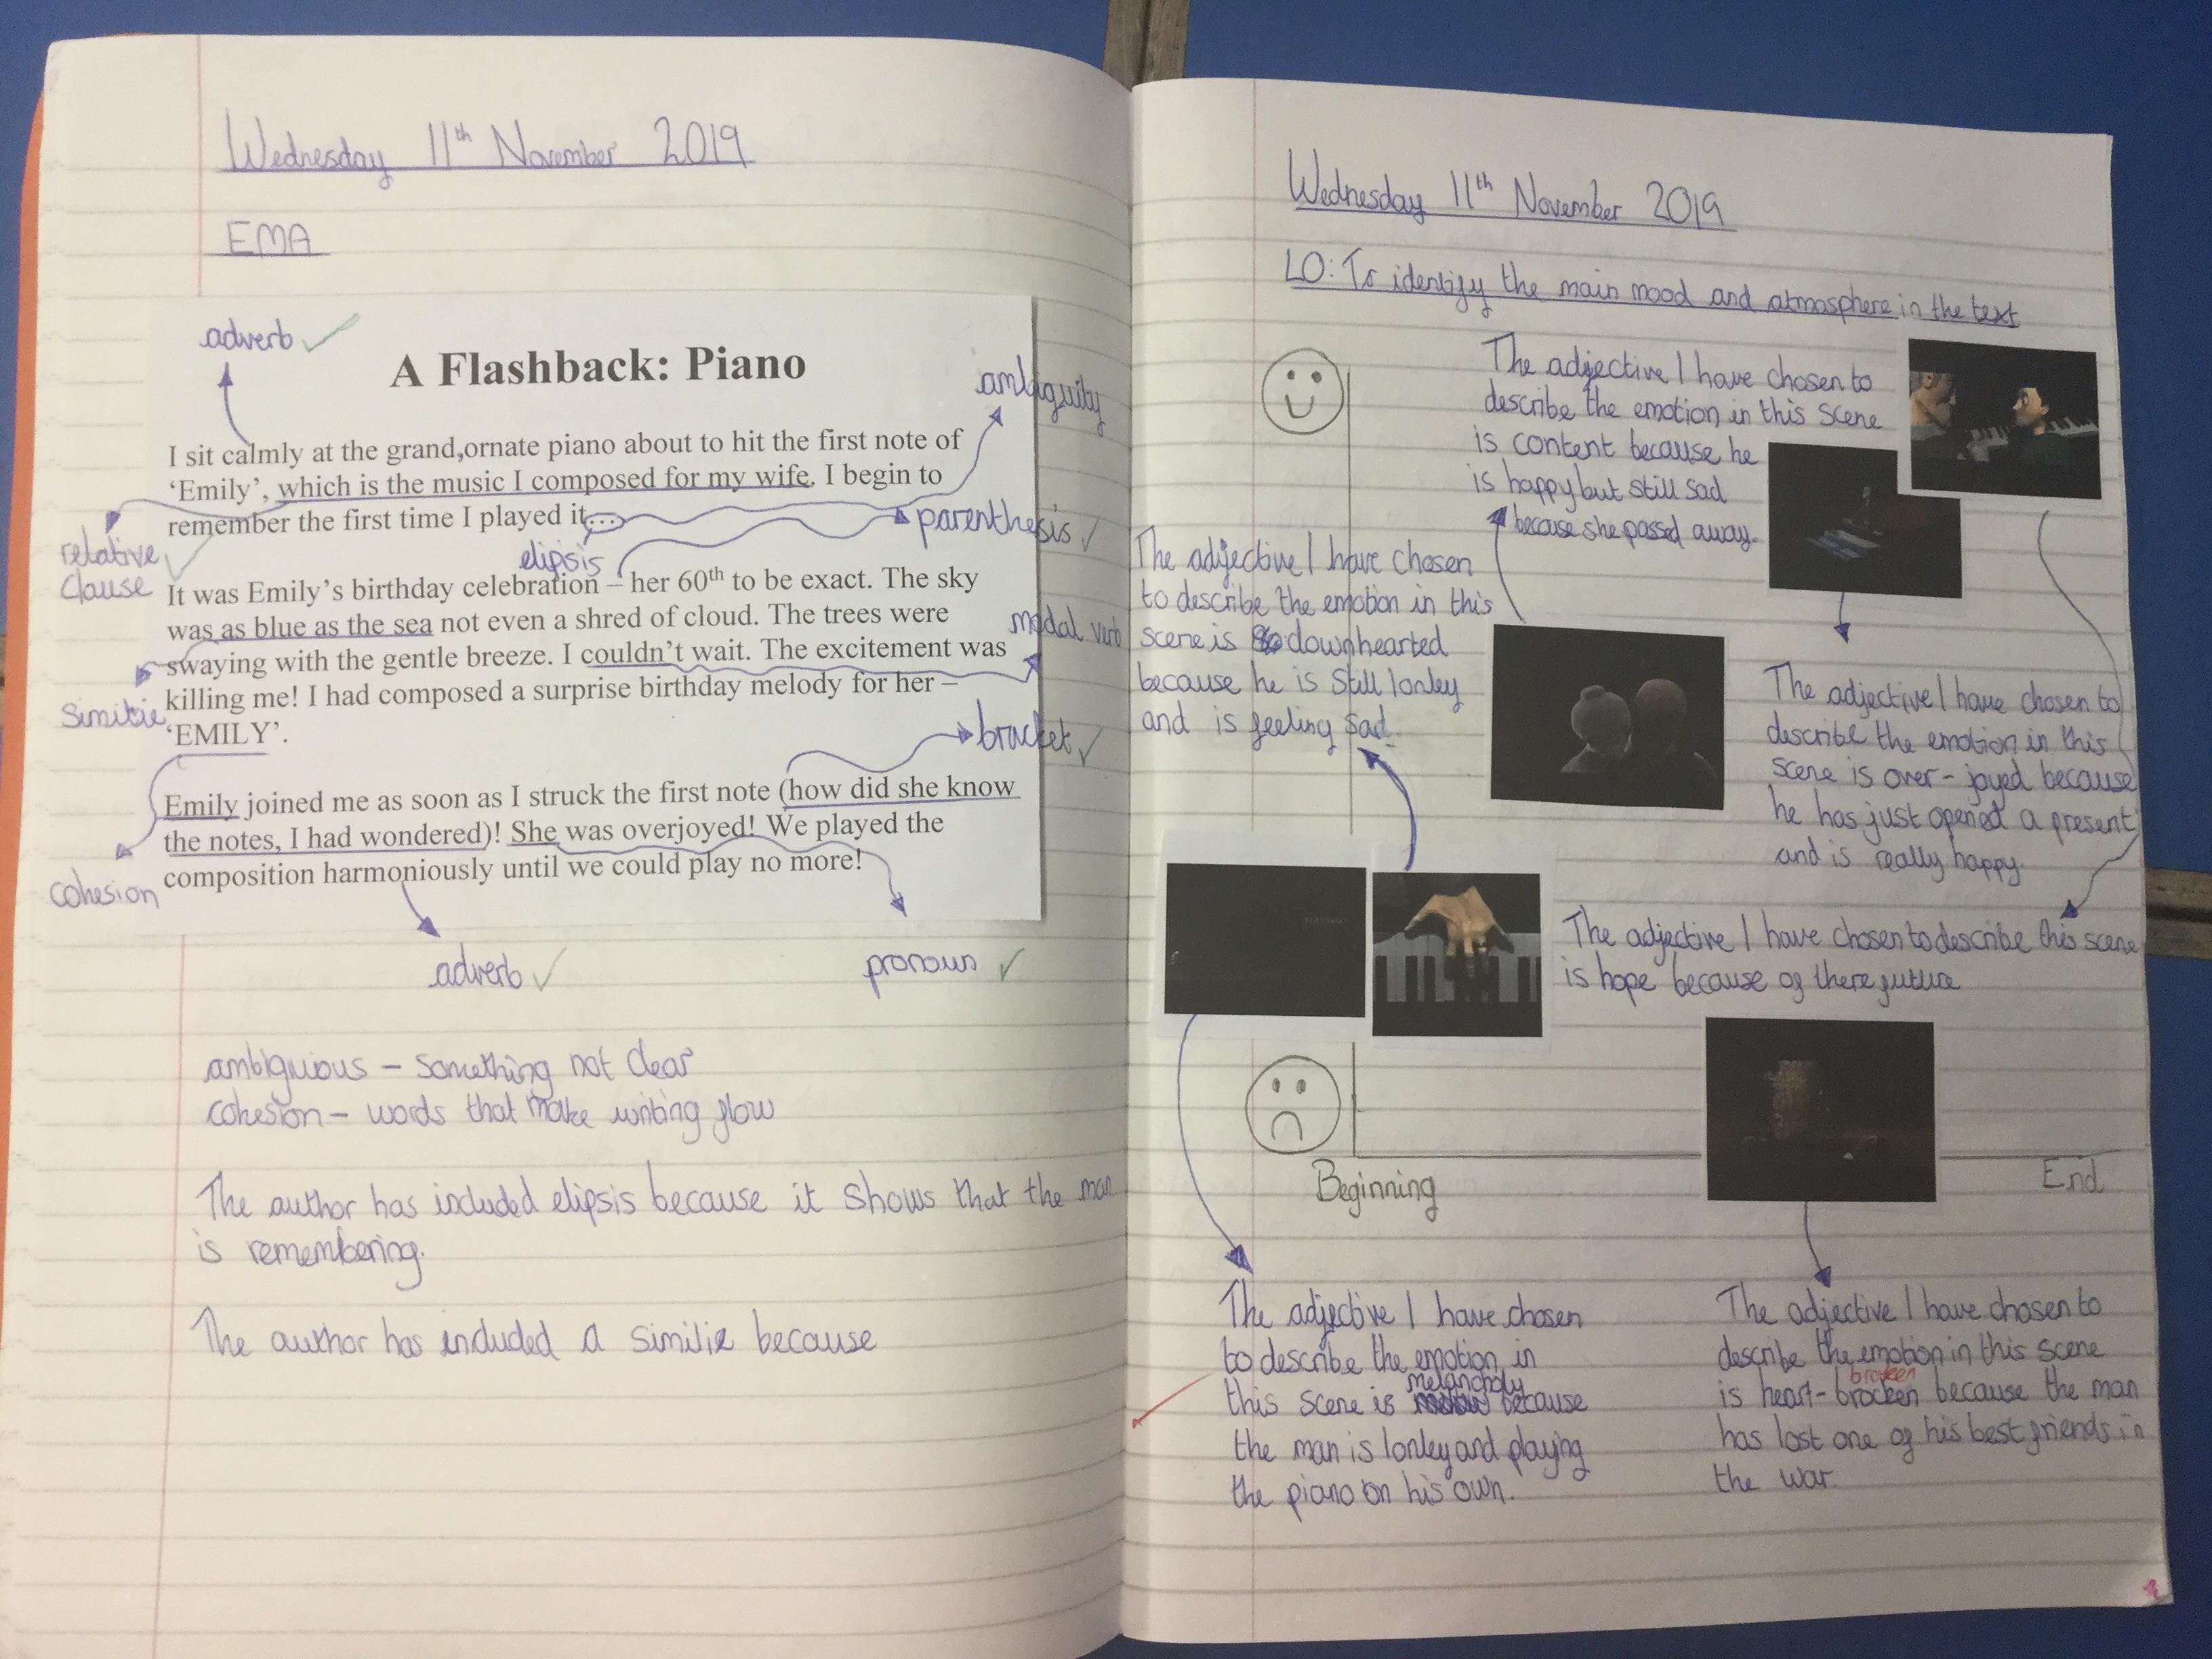 Wednesday 11th November 2019
EMA
adverb
A Flashback: Piano
ambiguity
I sit calmly at the grand,ornate piano about to hit the first note of
‘Emily’, which is the music I composed for my wife. I begin to
remember the first time I played it…
parenthesis
relative
clause
elipsis
It was Emily’s birthday celebration – her 60th to be exact. The sky
was as blue as the sea not even a shred of cloud. The trees were
modal verb
swaying with the gentle breeze. I couldn’t wait. The excitement was
killing me! I had composed a surprise birthday melody for her –
‘EMILY’.
Similie
bracket
Emily joined me as soon as I struck the first note (how did she know
the notes, I had wondered)! She was overjoyed! We played the
composition harmoniously until we could play no more!
cohesion
adverb
pronoun
ambiguious – something not clear
cohesion – words that make writing flow
The author has included elipsis because it shows that the man
is remembering.
The author has included a similie because
Wednesday 11th November 2019
LO: To identify the main mood and atmosphere in the text
The adjective I have chosen to
describe the emotion in this scene
is content because he
is happy but still sad
because she passed away.
The adjective I have chosen
to describe the emotion in this
scene is downhearted
because he is still lonley
and is feeling sad.
The adjective I have chosen to
describe the emotion in this
scene is over-joyed because
he has just opened a present
and is really happy.
The adjective I have chosen to describe this scene
is hope because of there future
Beginning
End
The adjective I have chosen
to describe the emotion in
this scene is melancholy because
the man is lonley and playing
the piano on his own.
The adjective I have chosen to
describe the emotion in this scene
broken
is heart-brocken because the man
has lost one of his best friends in
the war.